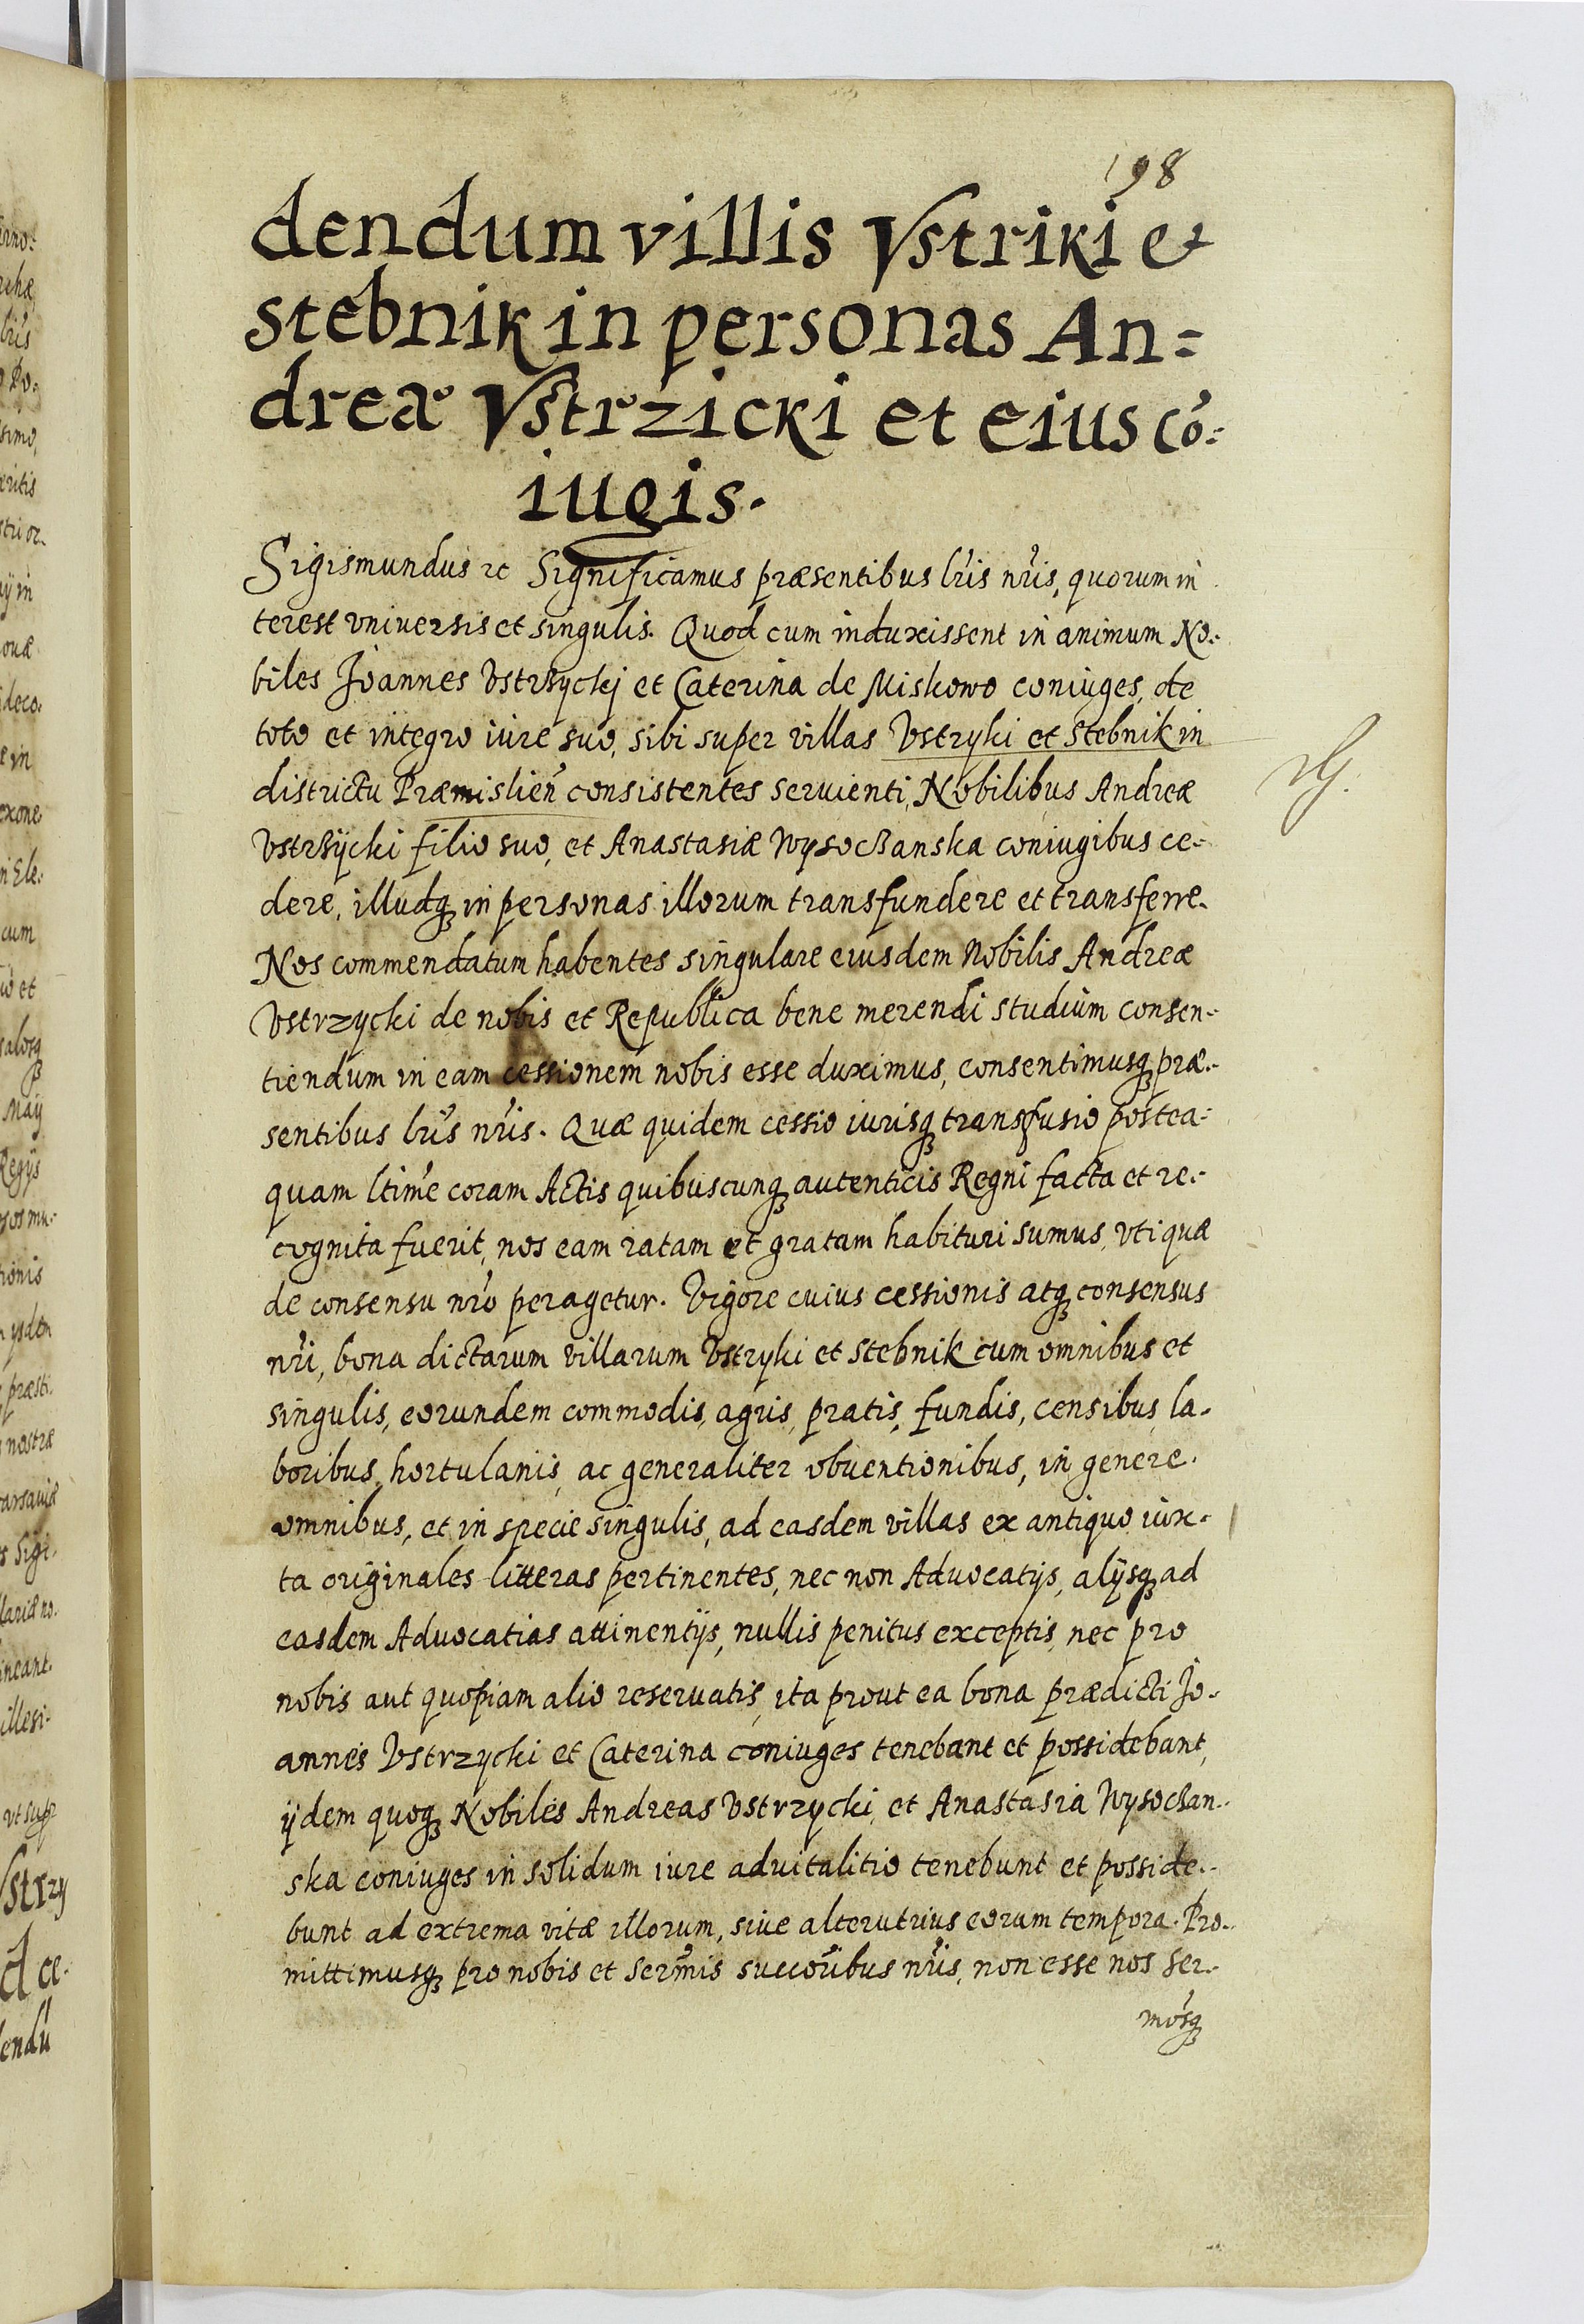 198
dendum villis Vstriki et
stebnik in personas An=
dreæ Vstrzicki et eius cõ=
iugis.
Sigismundus ꝛc Significamus præsentibus lr̃is nr̃is, quorum in
terest vniuersis et singulis. Quod cum induxissent in animum No-
biles Joannes Vstrzyckj et Caterina de Miskowo coniuges, de
toto et integro iure suo, sibi super villas Vstryki et Stebnik in
districtu Præmislien̄ consistentes seruienti, Nobilibus Andreæ
Vstrzÿcki filio suo, et Anastasiæ Wysoczanska coniugibus ce-
dere, illudqꝫ in personas illorum transfundere et transferre.
Nos commendatum habentes singulare eiusdem Nobilis Andreæ
Vstrzycki de nobis et Republica bene merendi studium consen-
tiendum in eam cessionem nobis esse duximus, consentimusqꝫ præ-
sentibus lr̃is nr̃is. Quæ quidem cessio iurisqꝫ transfusio postea-
quam ltime coram Actis quibuscunqꝫ autenticis Regni facta et re-
cognita fuerit, nos eam ratam et gratam habituri sumus, vti quæ
de consensu nr̃o peragetur. Vigore cuius cessionis atqꝫ consensus
nr̃i, bona dictarum villarum Vstryki et Stebnik cum omnibus et
singulis, eorundem commodis, agris, pratis, fundis, censibus, la-
boribus, hortulanis, ac generaliter obuentionibus, in genere
omnibus, et in specie singulis, ad easdem villas ex antiquo iux-
ta originales litteras pertinentes, nec non Aduocatijs, alijsqꝫ ad
easdem Aduocatias attinentijs, nullis penitus exceptis, nec pro
nobis aut quopiam alio reseruatis, ita prout ea bona prædicti Jo-
annes Vstrzycki et Caterina coniuges tenebant et possidebant,
ijdem quoqꝫ Nobiles Andreas Vstrzycki, et Anastasia Wysoczan-
ska coniuges in solidum iure aduitalitio tenebunt et posside-
bunt ad extrema vitæ illorum, siue alterutrius eorum tempora. Pro-
mittimusqꝫ pro nobis et Serm̃is succorĩbus nr̃is, non esse nos Ser-
mosqꝫ